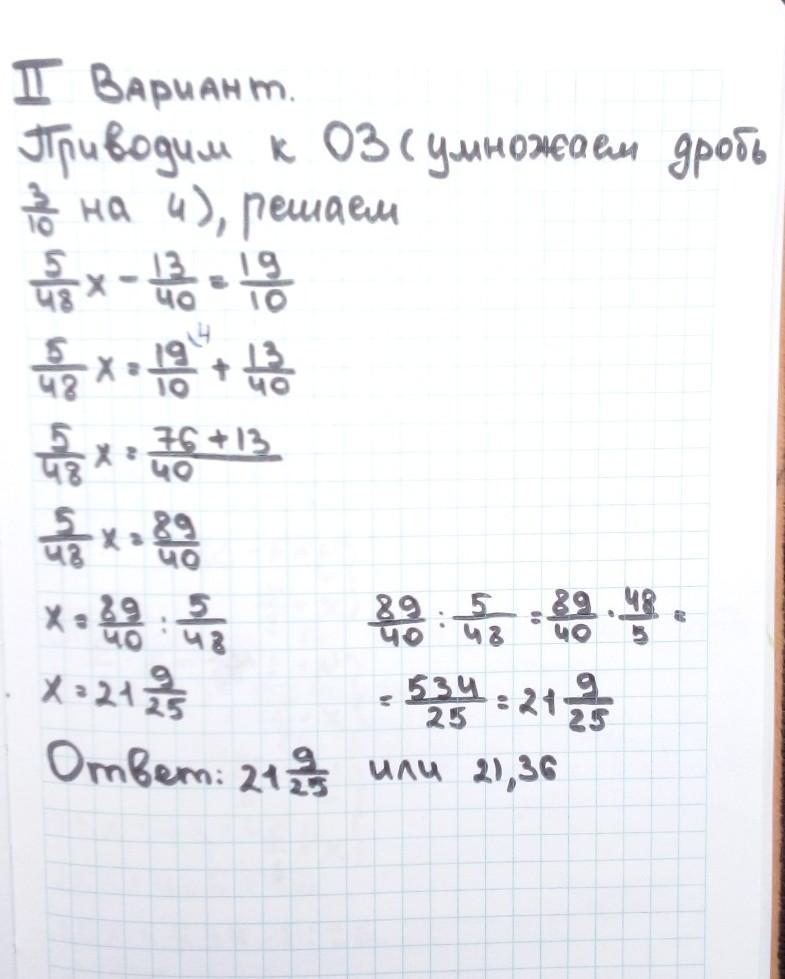 II Вариант.
Приводим к ОЗ (умножаем дробь
3/10 на 4), решаем
5/48 x - 13/40 = 19/10
5/48 x = 19/10 \4 + 13/40
5/48 x = 76 + 13/40
5/48 x = 89/40
x = 89/40 : 5/48
89/40 : 5/48 = 89/40 · 48/5 =
x = 21 9/25
= 534/25 = 21 9/25
Ответ: 21 9/25 или 21,36